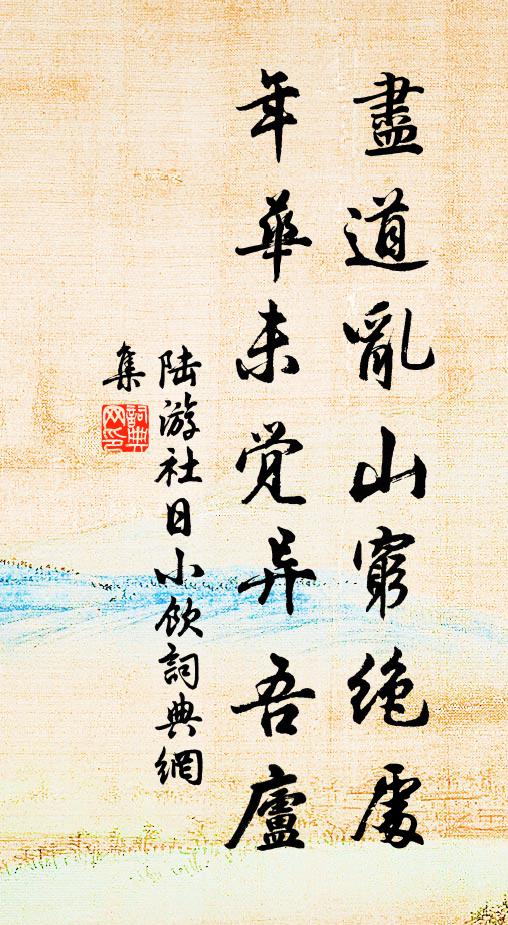 盡道亂山窮絶處
年華未觉异吾廬
陸游社日小飲詞典網
集
詞典网印